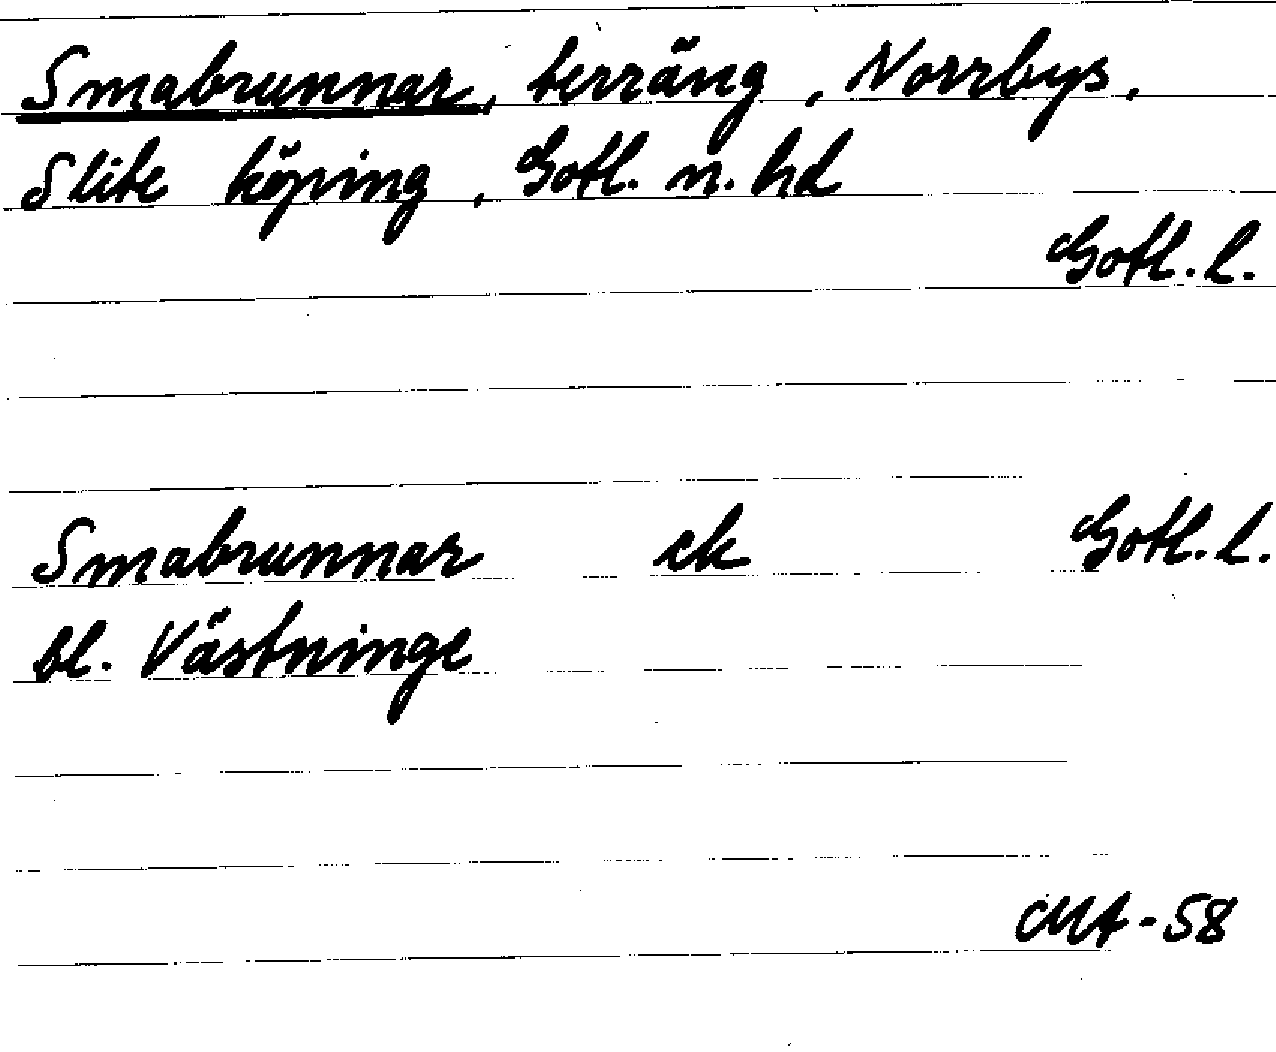 Smabrunnar, terräng, Norrbys,
Slite köping, Gotl. n. hd
Gotl. l.
Smabrunnar ek Gotl. l.
bl. Västninge
MA-58